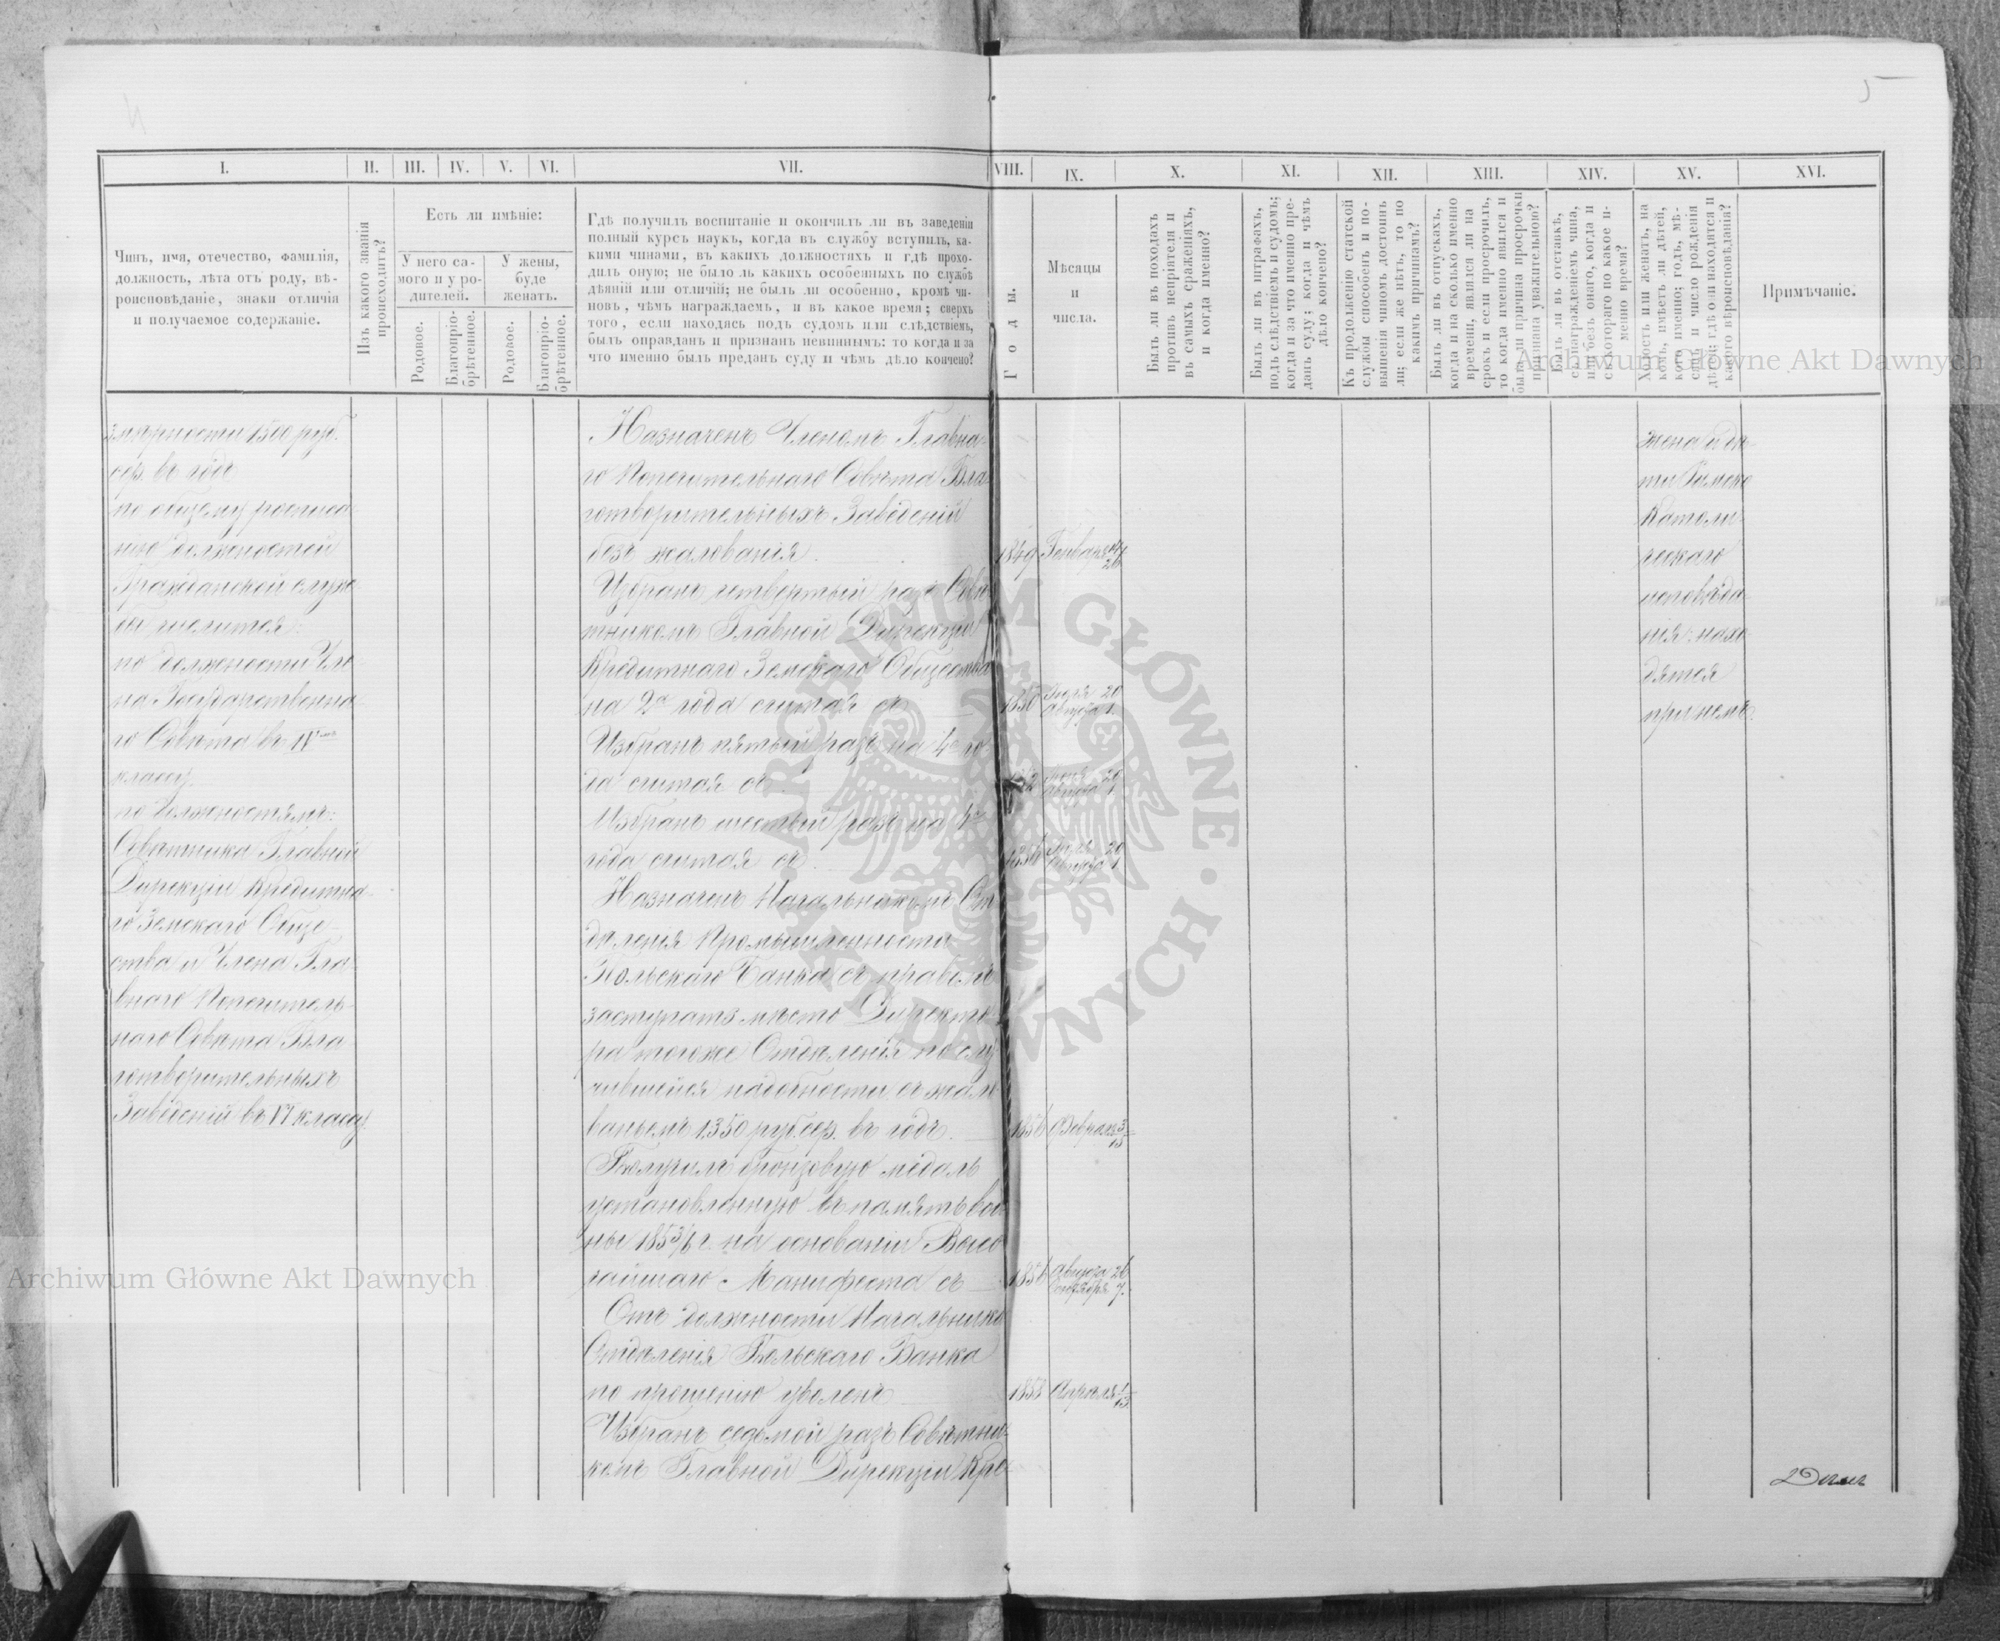 5
I. II. III. IV. V. VI. VII. VIII. IX. X. XI. XII. XIII. XIV. XV. XVI.
Чинъ, имя, отечество, фамилія,
должность, лѣта отъ роду, вѣ-
роисповѣданіе, знаки отличія
и получаемое содержаніе.
Изъ какого званія
происходитъ?
Есть ли имѣніе:
У него са-
мого и у ро-
дителей.
У жены,
буде
женатъ.
Родовое.
Благопріо-
брѣтенное.
Родовое.
Благопріо-
брѣтенное.
Гдѣ получилъ воспитаніе и окончилъ ли въ заведеніи
полный курсъ наукъ, когда въ службу вступилъ, ка-
кими чинами, въ какихъ должностяхъ и гдѣ прохо-
дилъ оную; не было ль какихъ особенныхъ по службѣ
дѣяній или отличій; не былъ ли особенно, кромѣ чи-
новъ, чѣмъ награждаемъ, и въ какое время; сверхъ
того, если находясь подъ судомъ или слѣдствіемъ,
былъ оправданъ и признанъ невиннымъ: то когда и за
что именно былъ преданъ суду и чѣмъ дѣло кончено?
Годы.
Мѣсяцы
и
числа.
Былъ ли въ походахъ
противъ непріятеля и
въ самыхъ сраженіяхъ,
и когда именно?
Былъ ли въ штрафахъ,
подъ слѣдствіемъ и судомъ;
когда и за что именно пре-
данъ суду; когда и чѣмъ
дѣло кончено?
Къ продолженію статской
службы способенъ и по-
вышенія чиномъ достоинъ
ли; если же нѣтъ, то по
какимъ причинамъ?
Былъ ли въ отпускахъ,
когда и на сколько именно
времени, явился ли на
срокъ и если просрочилъ,
то когда именно явился и
была ли причина просрочки
признана уважительною?
Былъ ли въ отставкѣ,
съ награжденіемъ чина,
или безъ онаго, когда и
съ котораго по какое и-
менно время?
Холостъ или женатъ, на
комъ, имѣетъ ли дѣтей,
кого именно; годъ, мѣ-
сяцъ и число рожденія
дѣтей; гдѣ они находятся и
какого вѣроисповѣданія?
Примѣчаніе.
Archiwum Główne Akt Dawnych
эмеритости 1500 руб.
сер. въ годъ
по общему росписа
нію должностей
Гражданской служ-
бы числится:
по должности Чле-
на Государственна-
го Совѣта въ IV
классу
по должностямъ:
Совѣтника Главной
Дирекціи Кредитна-
го Земскаго Обще-
ства и Члена Гла-
внаго Попечитель-
наго Совѣта Бла-
готворительныхъ
Заведеній въ VI классу.
Назначенъ Членомъ Главна-
го Попечительнаго Совѣта Бла-
готворительныхъ Заведеній
безъ жалованія 1849 Генваря
Избранъ четвертый разъ Совѣ-
тникомъ Главной Дирекціи
Кредитнаго Земскаго Общества
на 2 года считая съ 1850 Іюля 20 Августа 1.
Избранъ пятый разъ на 4 го
да считая съ Іюля 20 Августа 1.
Избранъ шестый разъ на 4
года считая съ 1856 Іюля 20 Августа 1.
Назначенъ Начальникомъ От
дѣленія Промышленности
Польскаго Банка съ правомъ
заступать мѣсто Директо-
ра того же Отдѣленія по слу-
чившейся надобности съ жало-
ваньемъ 1350 руб. сер. въ годъ. 1856 Февраля 3/15
Получилъ бронзовую медаль
установленную въ память вой-
ны 1853/6 г. на основаніи Высо
чайшаго Манифеста съ 1856 Августа 26 Сентября 7.
Отъ должности Начальника
Отдѣленія Польскаго Банка
по прошенію уволенъ 1858 Апрѣля 1/13
Избранъ седьмой разъ Совѣтни-
комъ Главной Дирекціи Кре-
жена и дѣ-
ти Римско
Католи-
ческаго
исповѣда-
нія: нахо
дятся
при немъ.
ARCHIWUM GŁÓWNE AKT DAWNYCH
Archiwum Główne Akt Dawnych